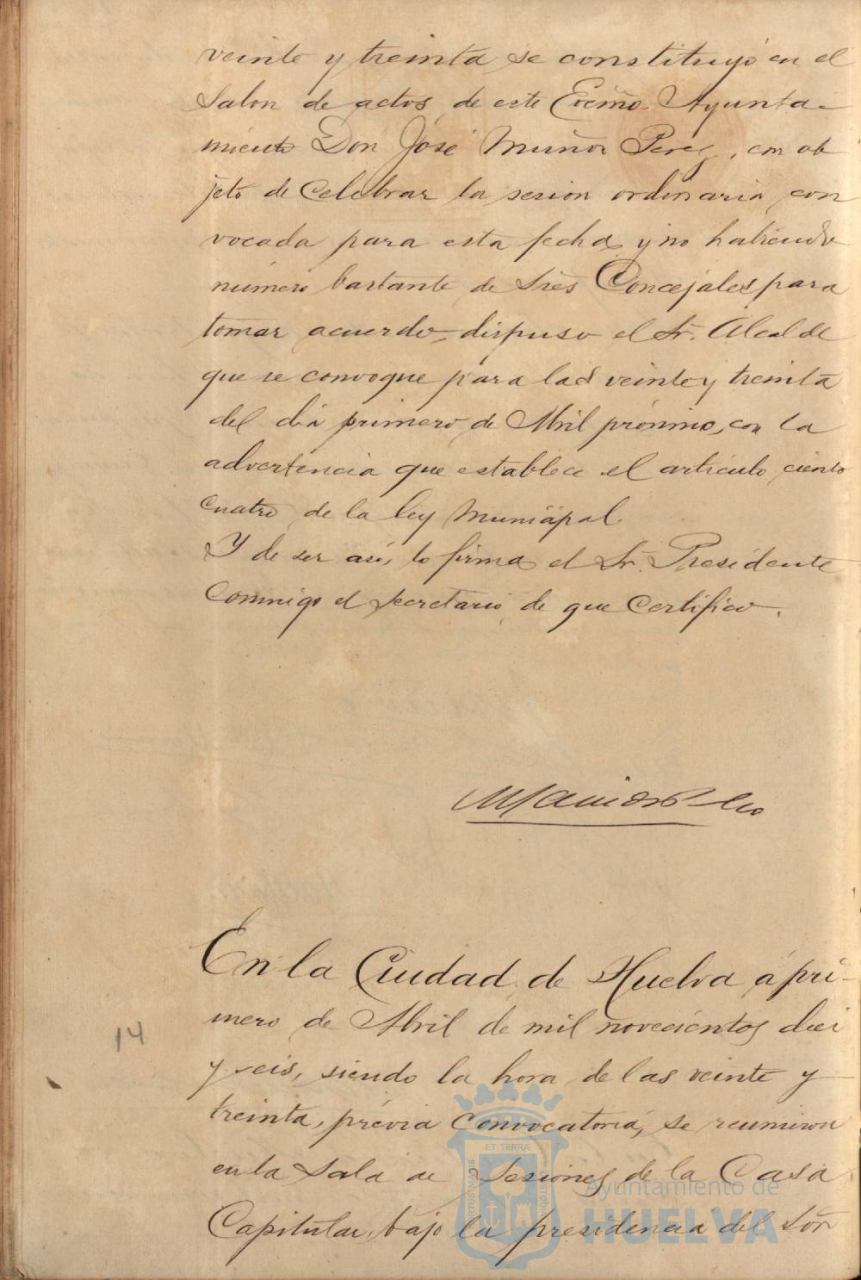 veinte y treinta, se constituyó en el
Salon de actos de este Excmo. Ayunta-
miento Don José Muñoz Perez, con ob
jeto de Celebrar la sesion ordinaria con
vocada para esta fecha, y no habiendo
número bastante de Sres Concejales para
tomar acuerdo, dispuso el Sr. Alcalde
que se convoque para las veinte y treinta
del dia primero de Abril próximo, con la
advertencia que establece el artículo ciento
cuatro de la ley Municipal.
Y de ser asi, lo firma el Sr. Presidente
Conmigo el Secretario, de que Certifico.
En la Ciudad de Huelva á pri-
mero de Abril de mil novecientos diei
14
y seis, siendo la hora de las veinte y
treinta, prévia Convocatoria, se reunieron
en la Sala de Sesiones de la Casa
Capitular, bajo la presidencia del Sõr
ET TERRA
Ayuntamiento de
HUELVA